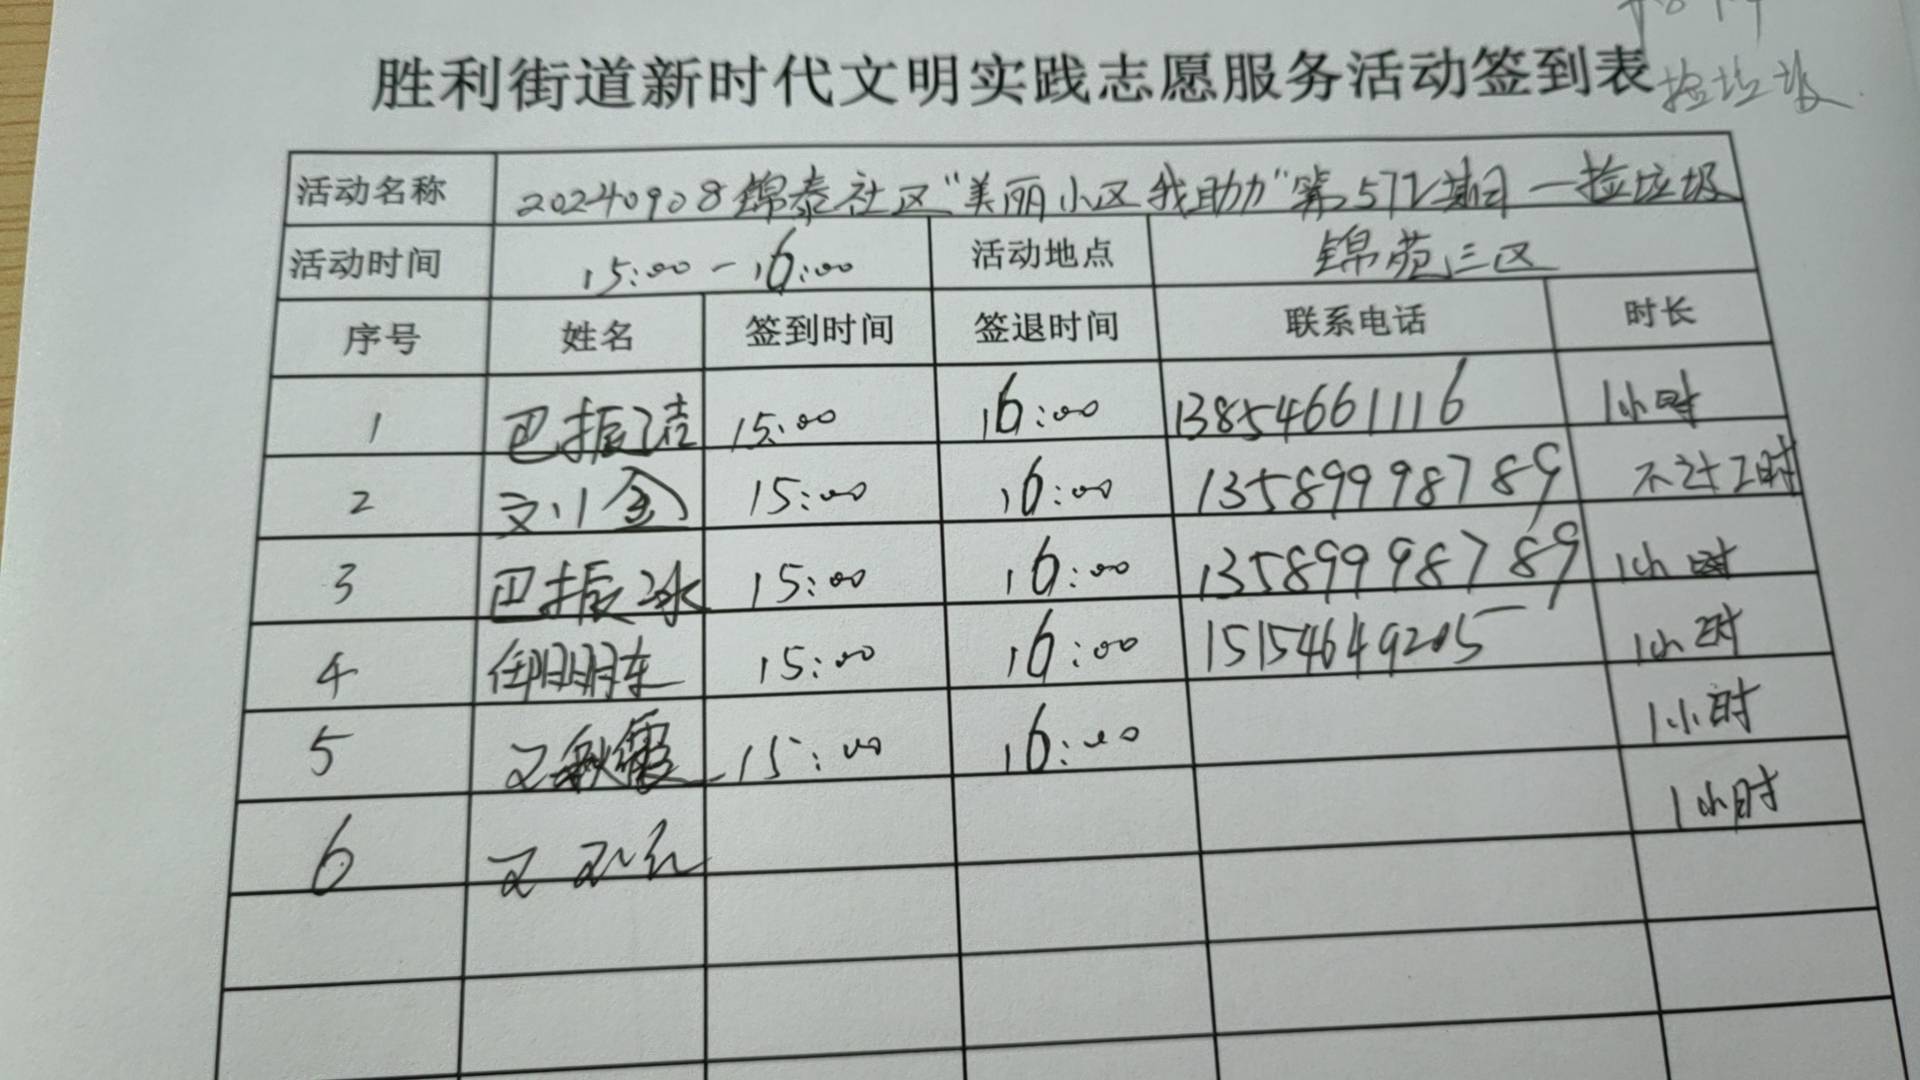 捡垃圾
胜利街道新时代文明实践志愿服务活动签到表
活动名称 20240908锦泰社区“美丽小区我助力”第572期—捡垃圾
活动时间 15:00-16:00 活动地点 锦苑三区
序号 姓名 签到时间 签退时间 联系电话 时长
1 巴振洁 15:00 16:00 13854661116 1小时
2 刘金 15:00 16:00 13589998789 不计工时
3 巴振冰 15:00 16:00 13589998789 1小时
4 任明东 15:00 16:00 15154649205 1小时
5 15:00 16:00 1小时
6 1小时